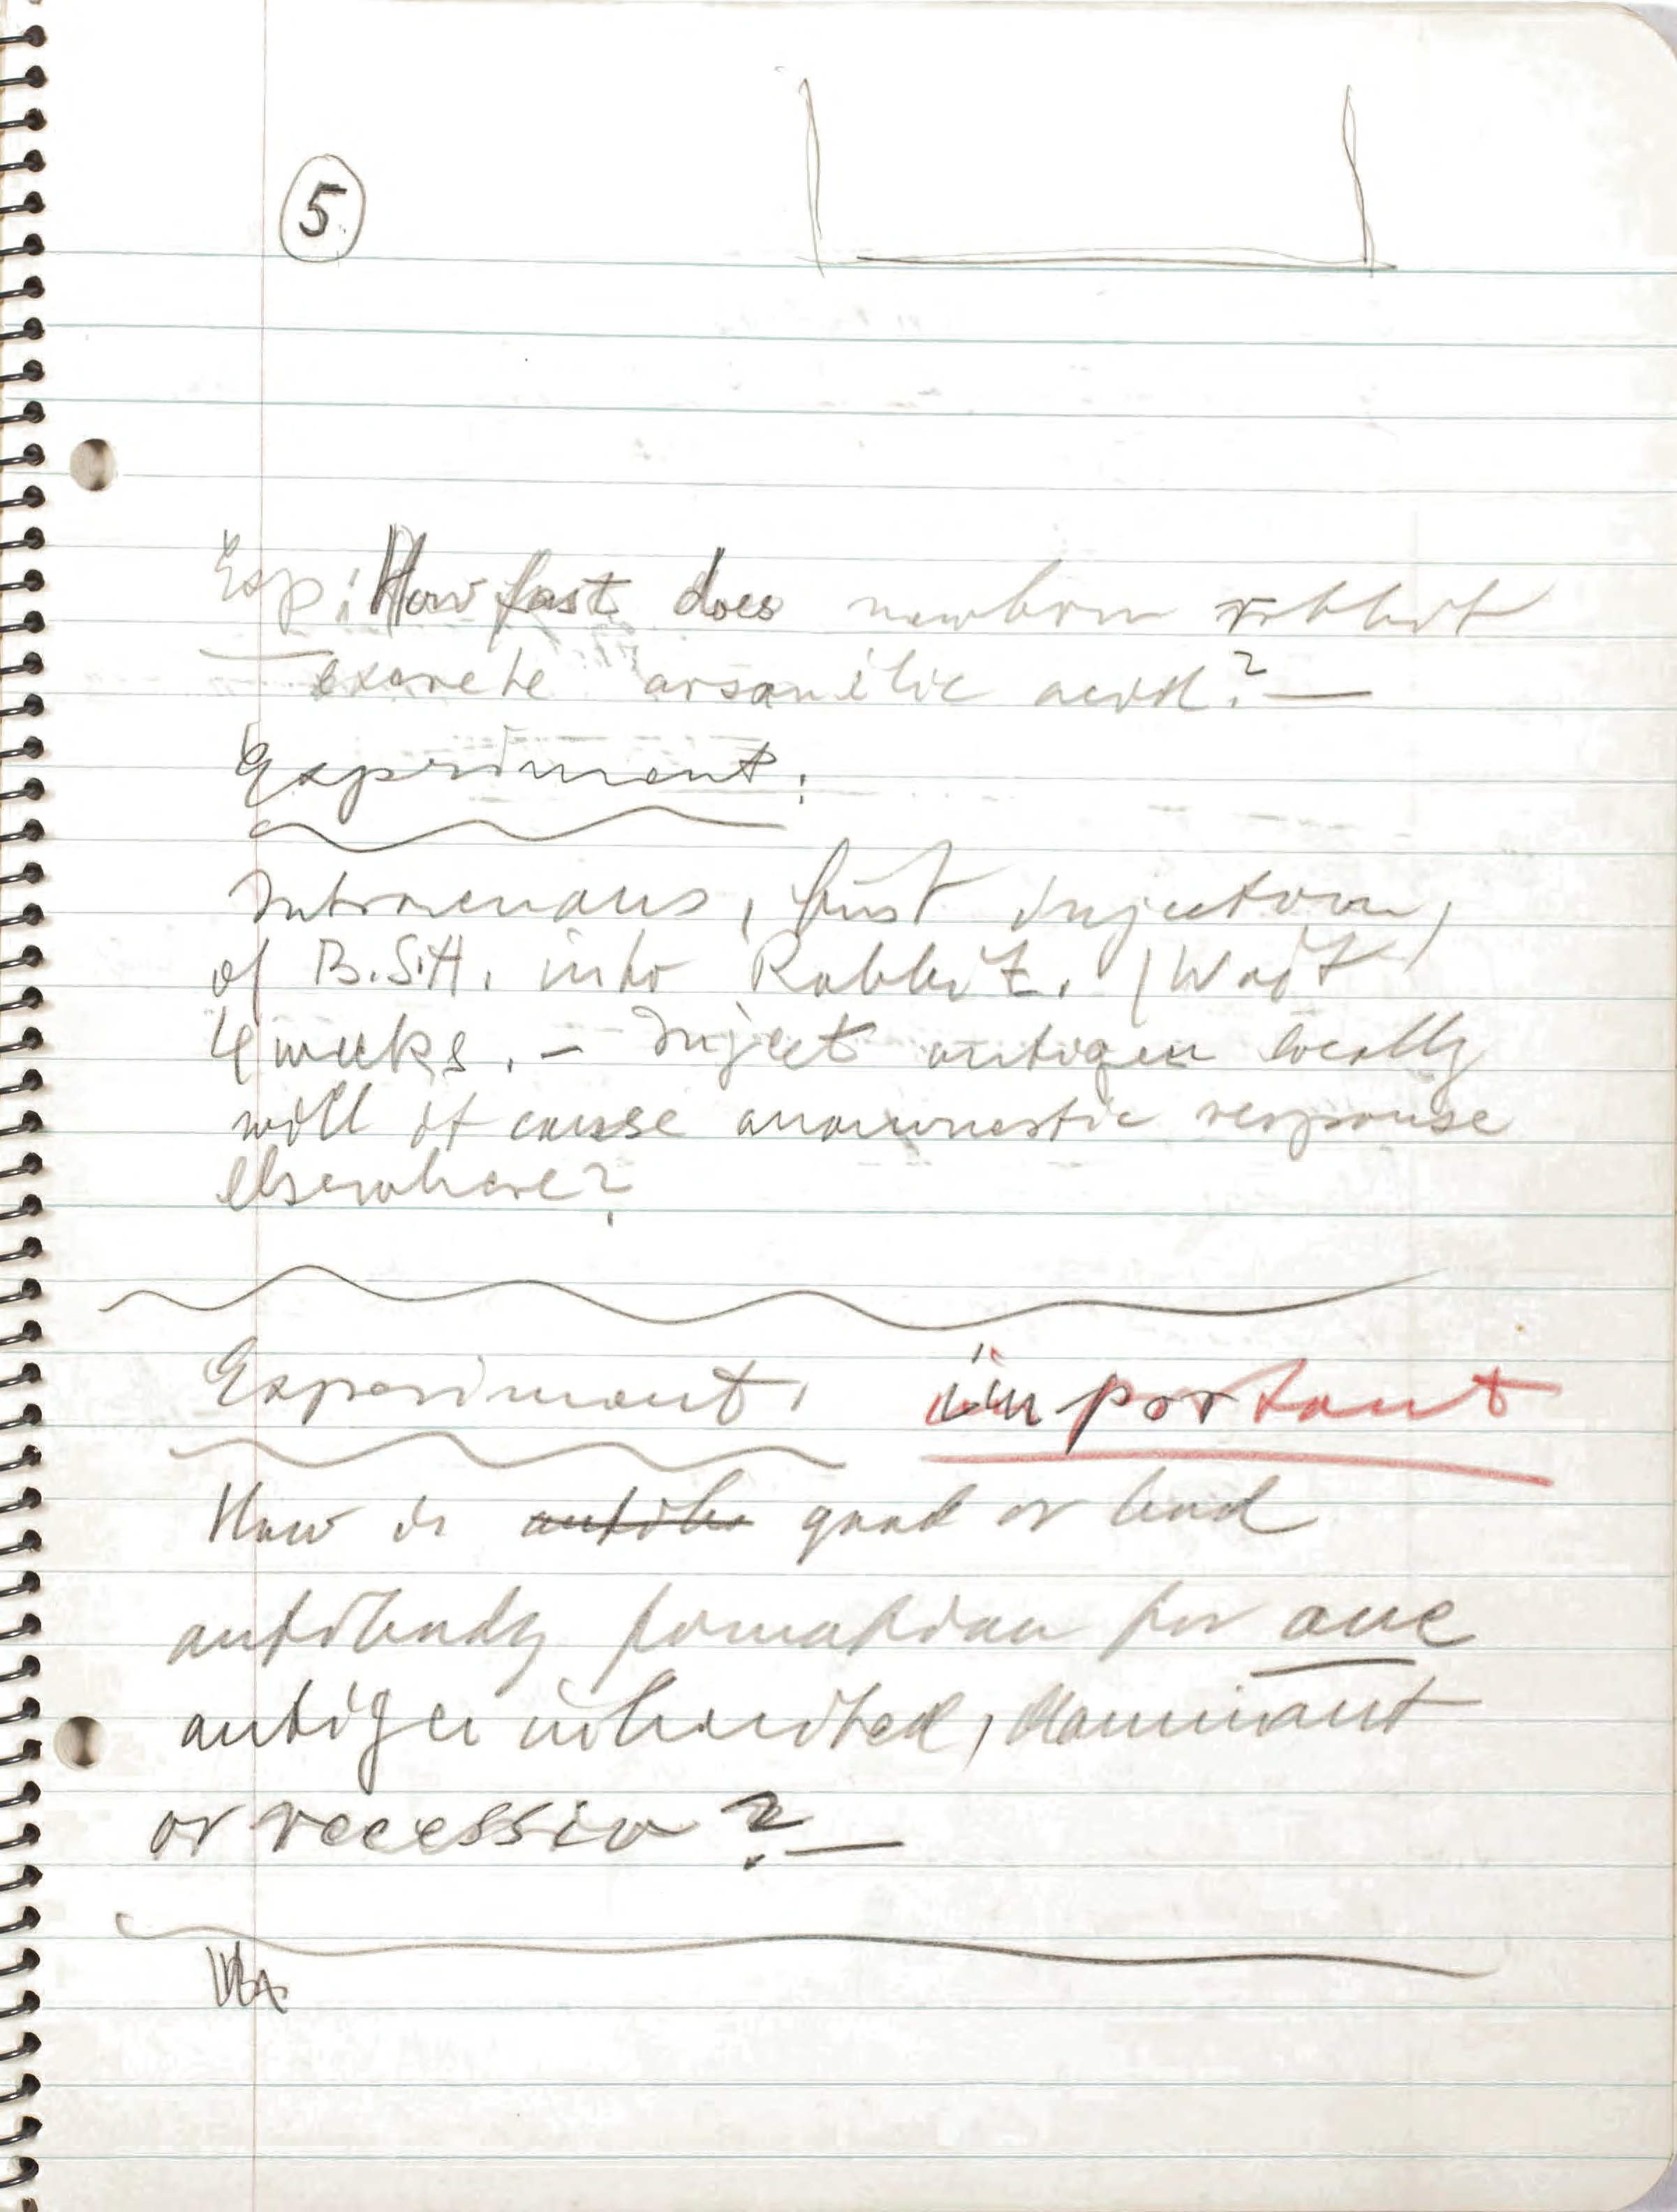 5
Exp: How fast does newborn rabbit
excrete arsanilic acid? —
Experiment:
Intravenous, first injection,
of B.S.A. into Rabbit. (Wait
4 weeks. — Inject antigen locally
will it cause anamnestic response
elsewhere?
Experiment: important
How is antibo good or bad
antibody formation for one
antigen inherited, dominant
or recessiv? —